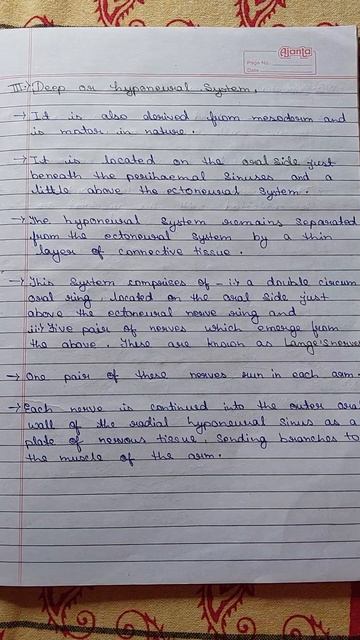 Ajanta
Page No.
Date
III→ Deep or hyponeural System.
→ It is also derived from mesoderm and
is motor in nature.
→ It is located on the oral side just
beneath the perihaemal sinuses and a
little above the ectoneural system.
→ The hyponeural system remains separated
from the ectoneural system by a thin
layer of connective tissue.
→ This system comprises of – i→ a double circum
oral ring, located on the oral side just
above the ectoneural nerve ring and
ii→ Five pair of nerves which emerge from
the above. These are known as Lange's nerves
→ One pair of these nerves run in each arm.
→ Each nerve is continued into the outer oral
wall of the radial hyponeural sinus as a
plate of nervous tissue, sending branches to
the muscle of the arm.